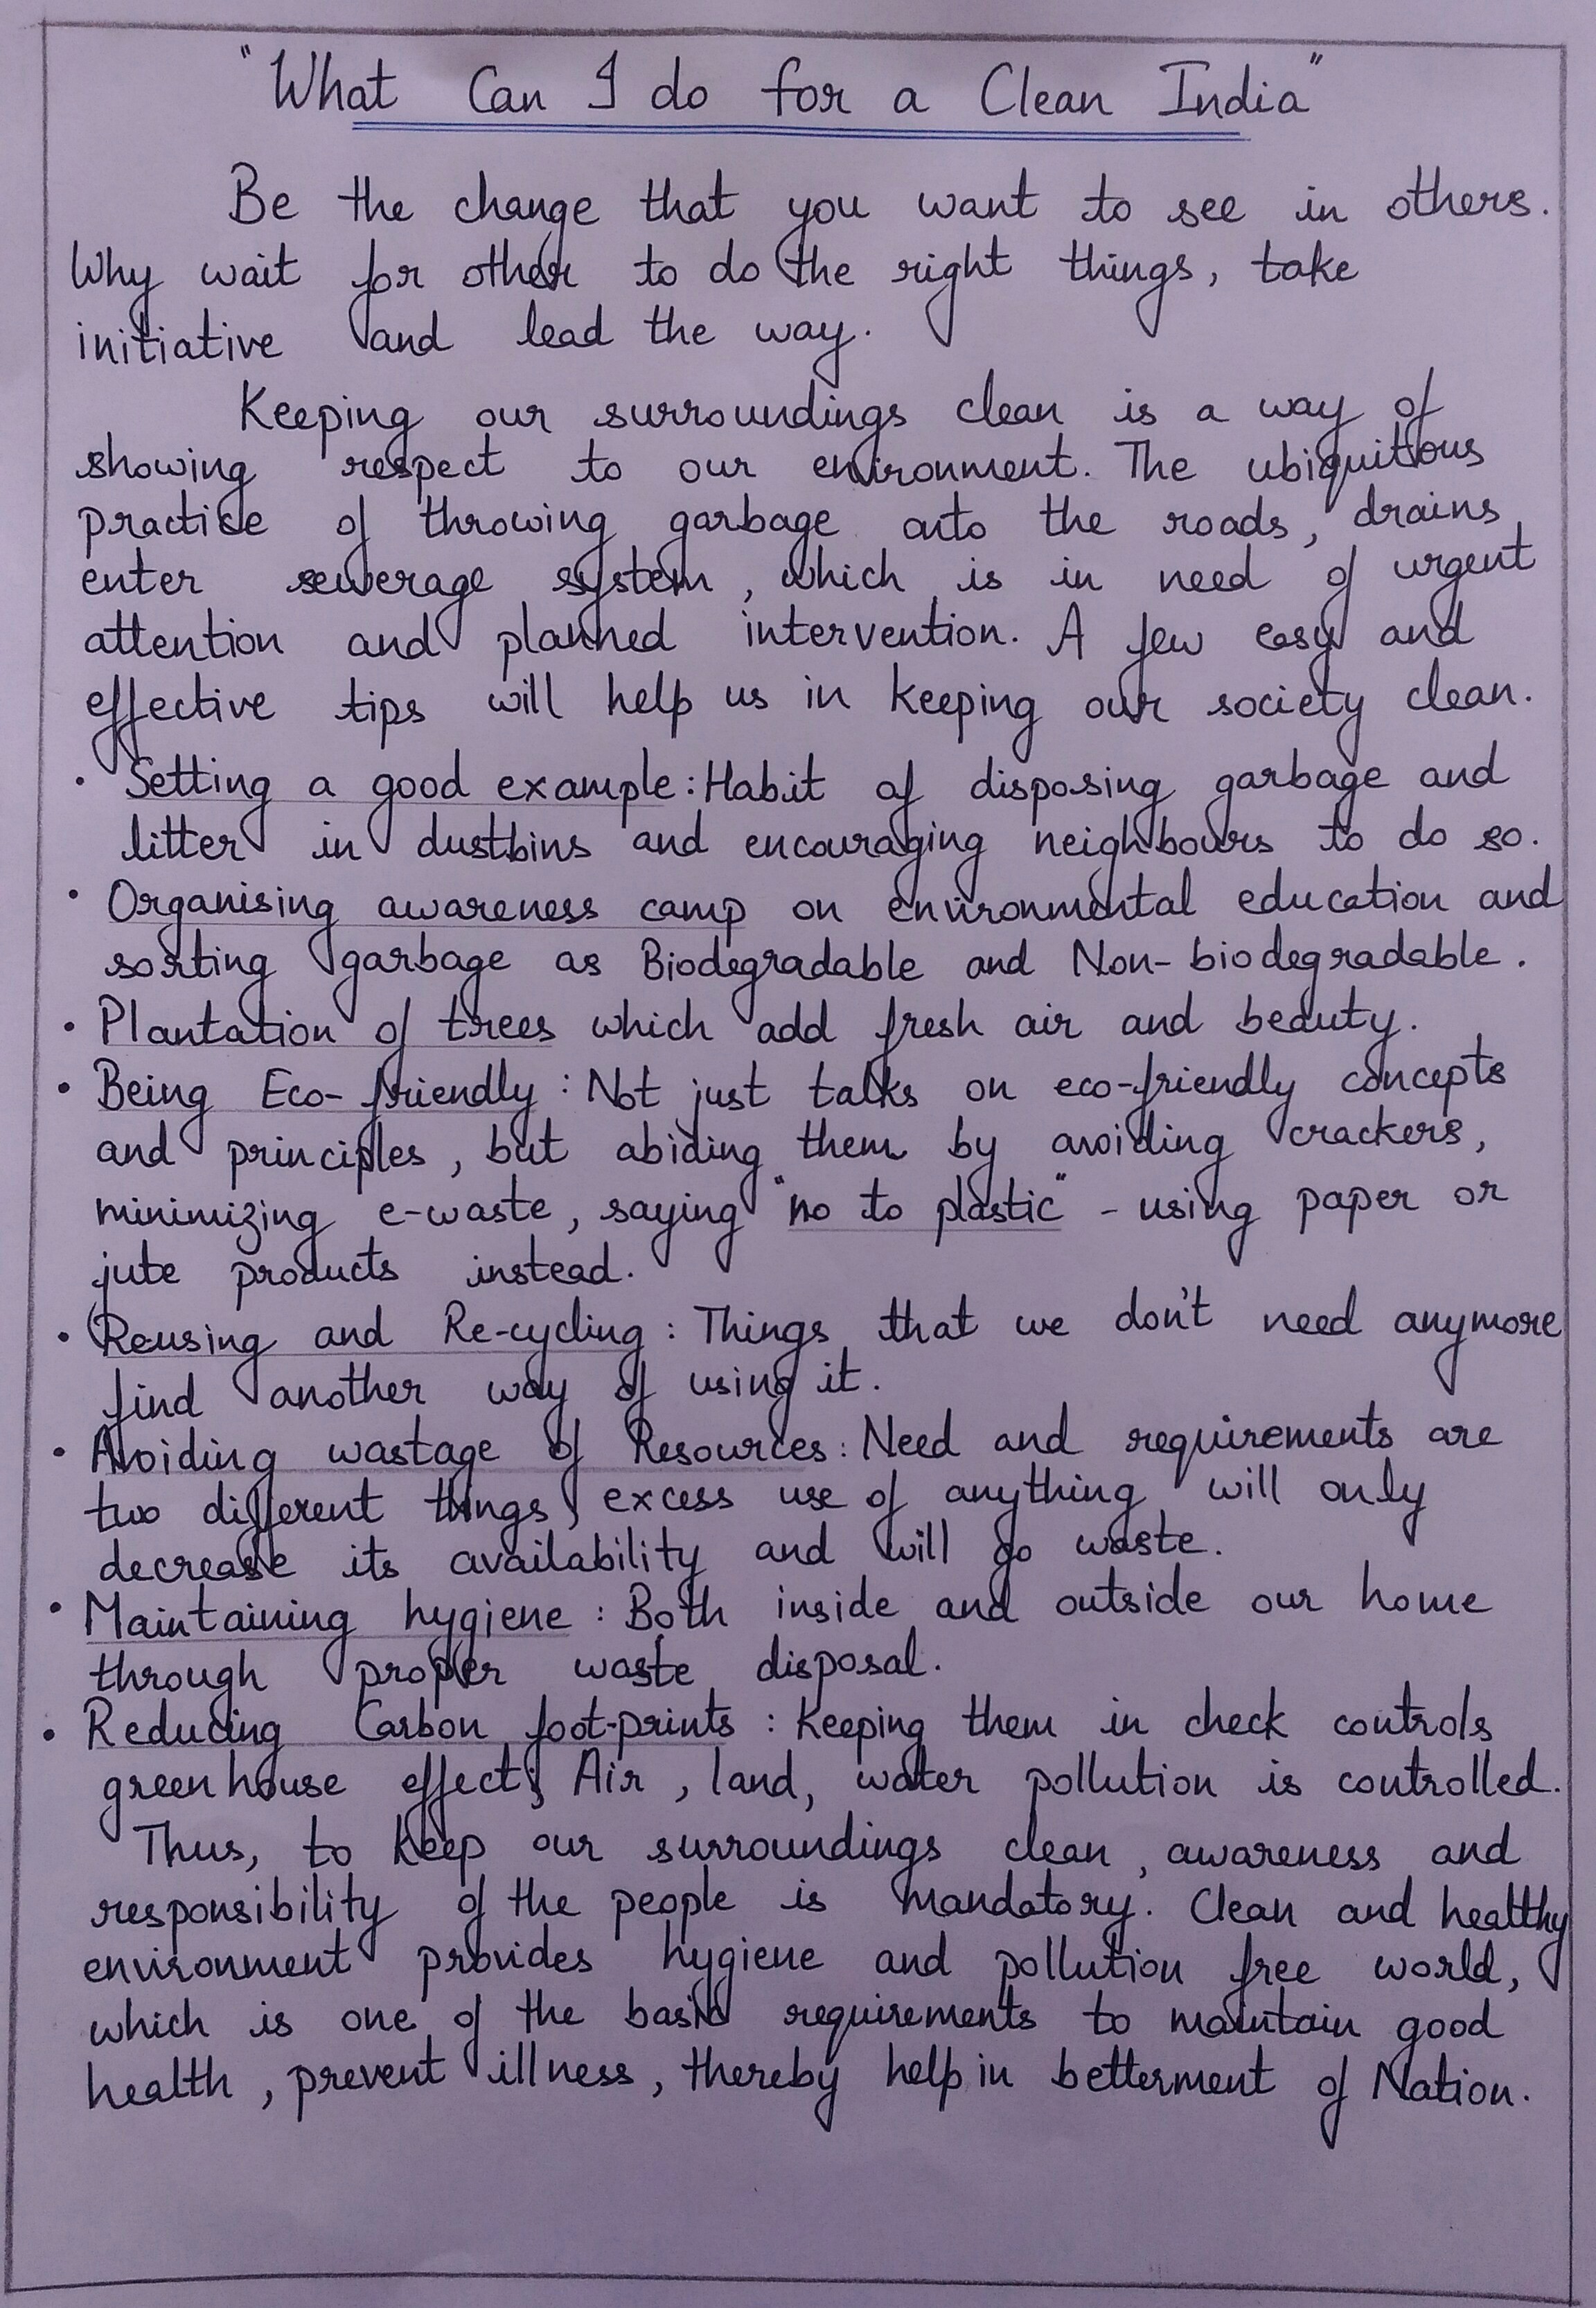 "What Can I do for a Clean India"
Be the change that you want to see in others.
Why wait for other to do the right things, take
initiative and lead the way.
Keeping our surroundings clean is a way of
showing respect to our environment. The ubiquitous
practise of throwing garbage onto the roads, drains
enter sewerage system, which is in need of urgent
attention and planned intervention. A few easy and
effective tips will help us in keeping our society clean.
• Setting a good example: Habit of disposing garbage and
litter in dustbins and encouraging neighbours to do so.
• Organising awareness camp on environmental education and
sorting garbage as Biodegradable and Non-biodegradable.
• Plantation of trees which add fresh air and beauty.
• Being Eco-friendly: Not just talks on eco-friendly concepts
and principles, but abiding them by avoiding crackers,
minimizing e-waste, saying "no to plastic" - using paper or
jute products instead.
• Reusing and Re-cycling: Things that we don't need anymore
find another way of using it.
• Avoiding wastage of Resources: Need and requirements are
two different things, excess use of anything will only
decrease its availability and will go waste.
• Maintaining hygiene: Both inside and outside our home
through proper waste disposal.
• Reducing Carbon foot-prints: Keeping them in check controls
greenhouse effect; Air, land, water pollution is controlled.
Thus, to keep our surroundings clean, awareness and
responsibility of the people is mandatory. Clean and healthy
environment provides hygiene and pollution free world,
which is one of the basic requirements to maintain good
health, prevent illness, thereby help in betterment of Nation.